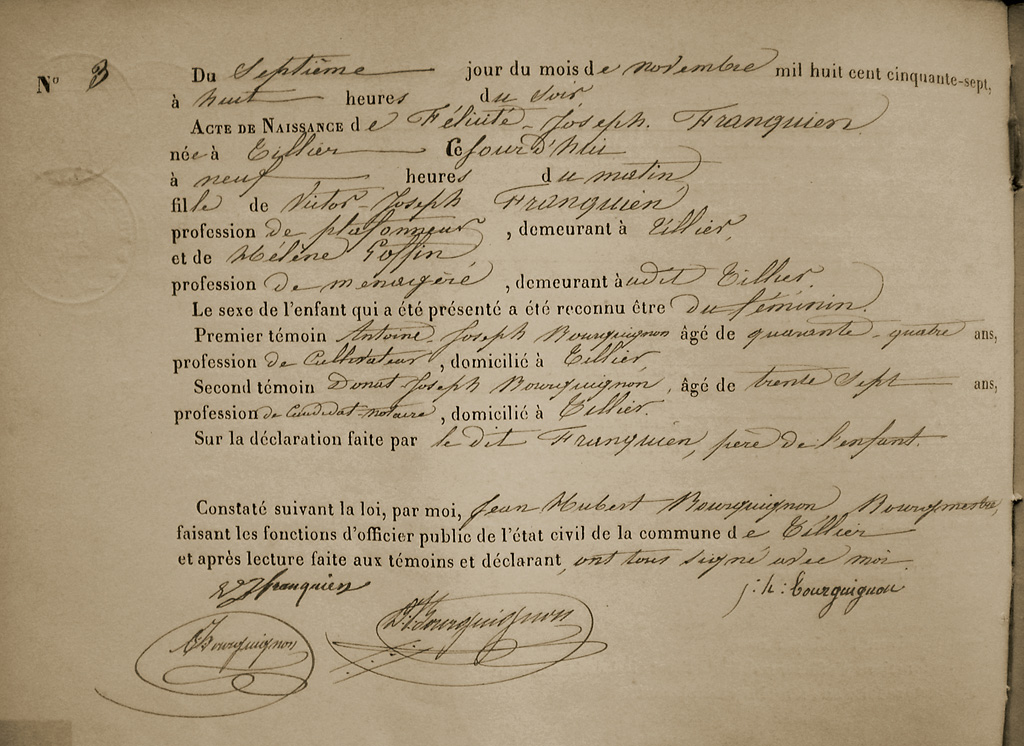 N° 3
Du Septième jour du mois de novembre mil huit cent cinquante-sept,
à huit heures du soir,
ACTE DE NAISSANCE de Félicité-Joseph. Franquien
née à Tillier Ce jour d'hui
à neuf heures du matin,
fille de Victor-Joseph Franquien
profession de plafonneur, demeurant à Tillier,
et de Hélène Goffin,
profession de ménagère, demeurant audit Tillier.
Le sexe de l'enfant qui a été présenté a été reconnu être du féminin.
Premier témoin Antoine Joseph Bourguignon âgé de quarante-quatre ans,
profession de Cultivateur, domicilié à Tillier,
Second témoin Donat-Joseph Bourguignon, âgé de trente sept ans,
profession de Candidat-notaire, domicilié à Tillier.
Sur la déclaration faite par le dit Franquien, père de l'enfant.
Constaté suivant la loi, par moi, Jean Hubert Bourguignon Bourgmestre,
faisant les fonctions d'officier public de l'état civil de la commune de Tillier
et après lecture faite aux témoins et déclarant, ont tous signé avec moi.
Franquien
j: h: bourguignon
Bourguignon
Bourguignon